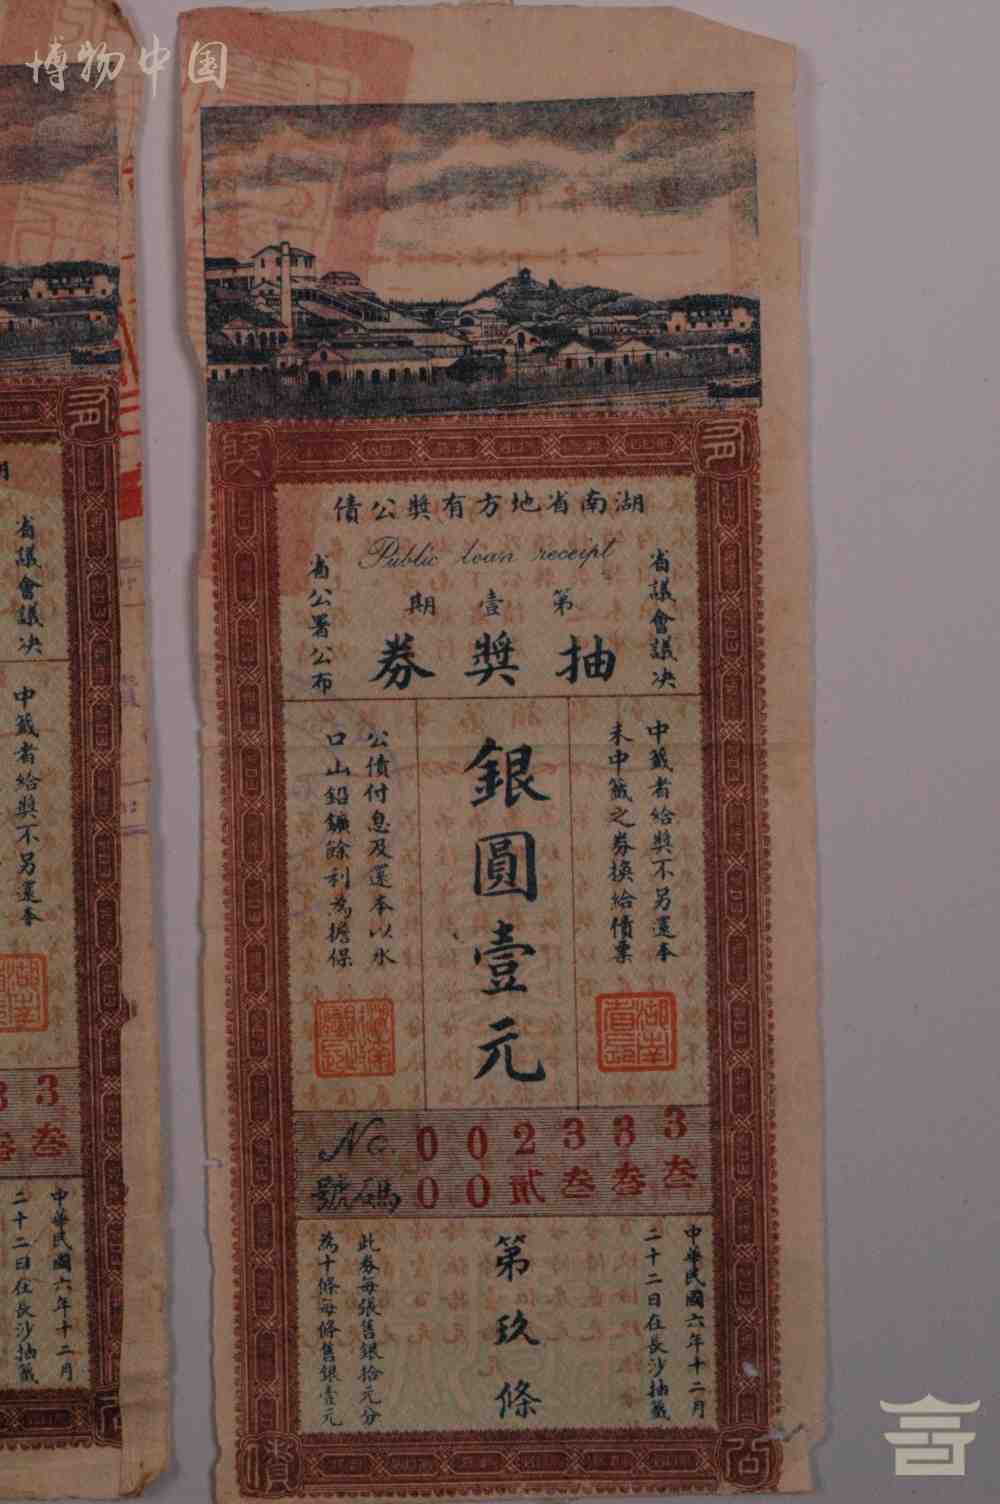 博物中国
湖南省地方有獎公債
Public loan receipt
省議會議决
第壹期
省公署公布
抽獎券
中籤者給獎不另還本
未中籤之券換給債票
銀圓壹元
公債付息及還本以水
口山鉛鑛餘利為擔保
湖南
No. 002333
號碼 00貳叁叁叁
中華民國六年十二月
二十二日在長沙抽籤
第玖條
此券每張售銀拾元分
為十條每條售銀壹元
有
獎
公
債
省議會議决
中籤者給獎不另還本
湖南
3
叁
中華民國六年十二月
二十二日在長沙抽籤